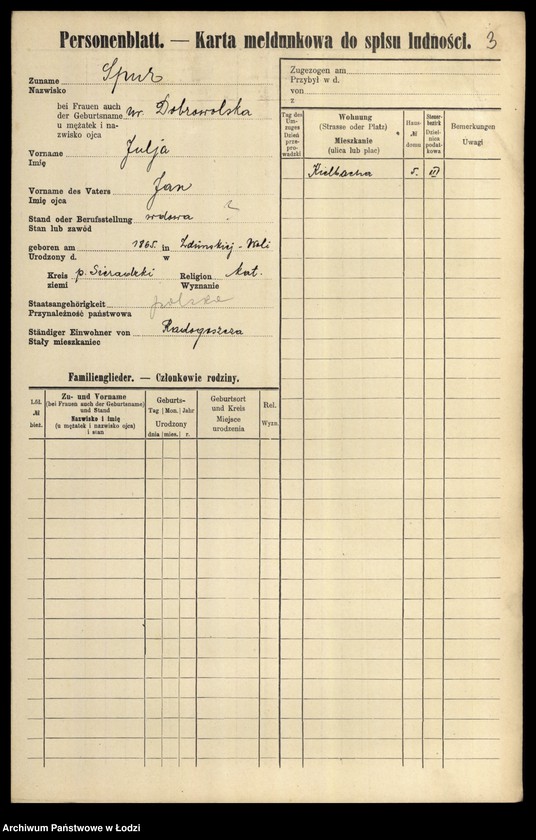 Personenblatt. — Karta meldunkowa do spisu ludności. 3
Zuname Spur
Nazwisko
bei Frauen auch
der Geburtsname ur. Dobrowolska
u mężatek i na-
zwisko ojca
Vorname Julja
Imię
Vorname des Vaters Jan
Imię ojca
Stand oder Berufsstellung wdowa ?
Stan lub zawód
geboren am 1865. in Zduńskiej-Woli
Urodzony d. w
Kreis p. Sieradzki Religion kat.
ziemi Wyznanie
Staatsangehörigkeit polska
Przynależność państwowa
Ständiger Einwohner von Radogoszcza
Stały mieszkaniec
Zugezogen am
Przybył w d.
von
z
Tag des Um-zuges Dzień prze-prowadzki
Wohnung
(Strasse oder Platz)
Mieszkanie
(ulica lub plac)
Haus-
№
domu
Steuer-
bezirk
Dziel-
nica
podat-
kowa
Bemerkungen
Uwagi
Kielbacha 5. III
Familienglieder. — Członkowie rodziny.
Lfd.
№
bież.
Zu- und Vorname
(bei Frauen auch der Geburtsname)
und Stand
Nazwisko i imię
(u mężatek i nazwisko ojca)
i stan
Geburts-
Tag Mon. Jahr
Urodzony
dnia mies. r.
Geburtsort
und Kreis
Miejsce
urodzenia
Rel.
Wyzn.
Archiwum Państwowe w Łodzi